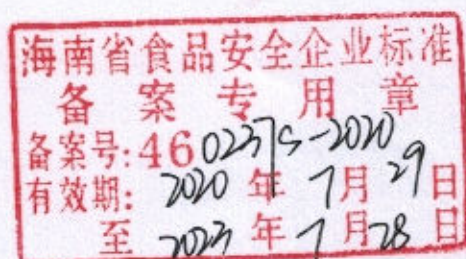 海南省食品安全企业标准
备案专用章
备案号:460237S-2020
有效期:2020年7月29日
至2023年7月28日